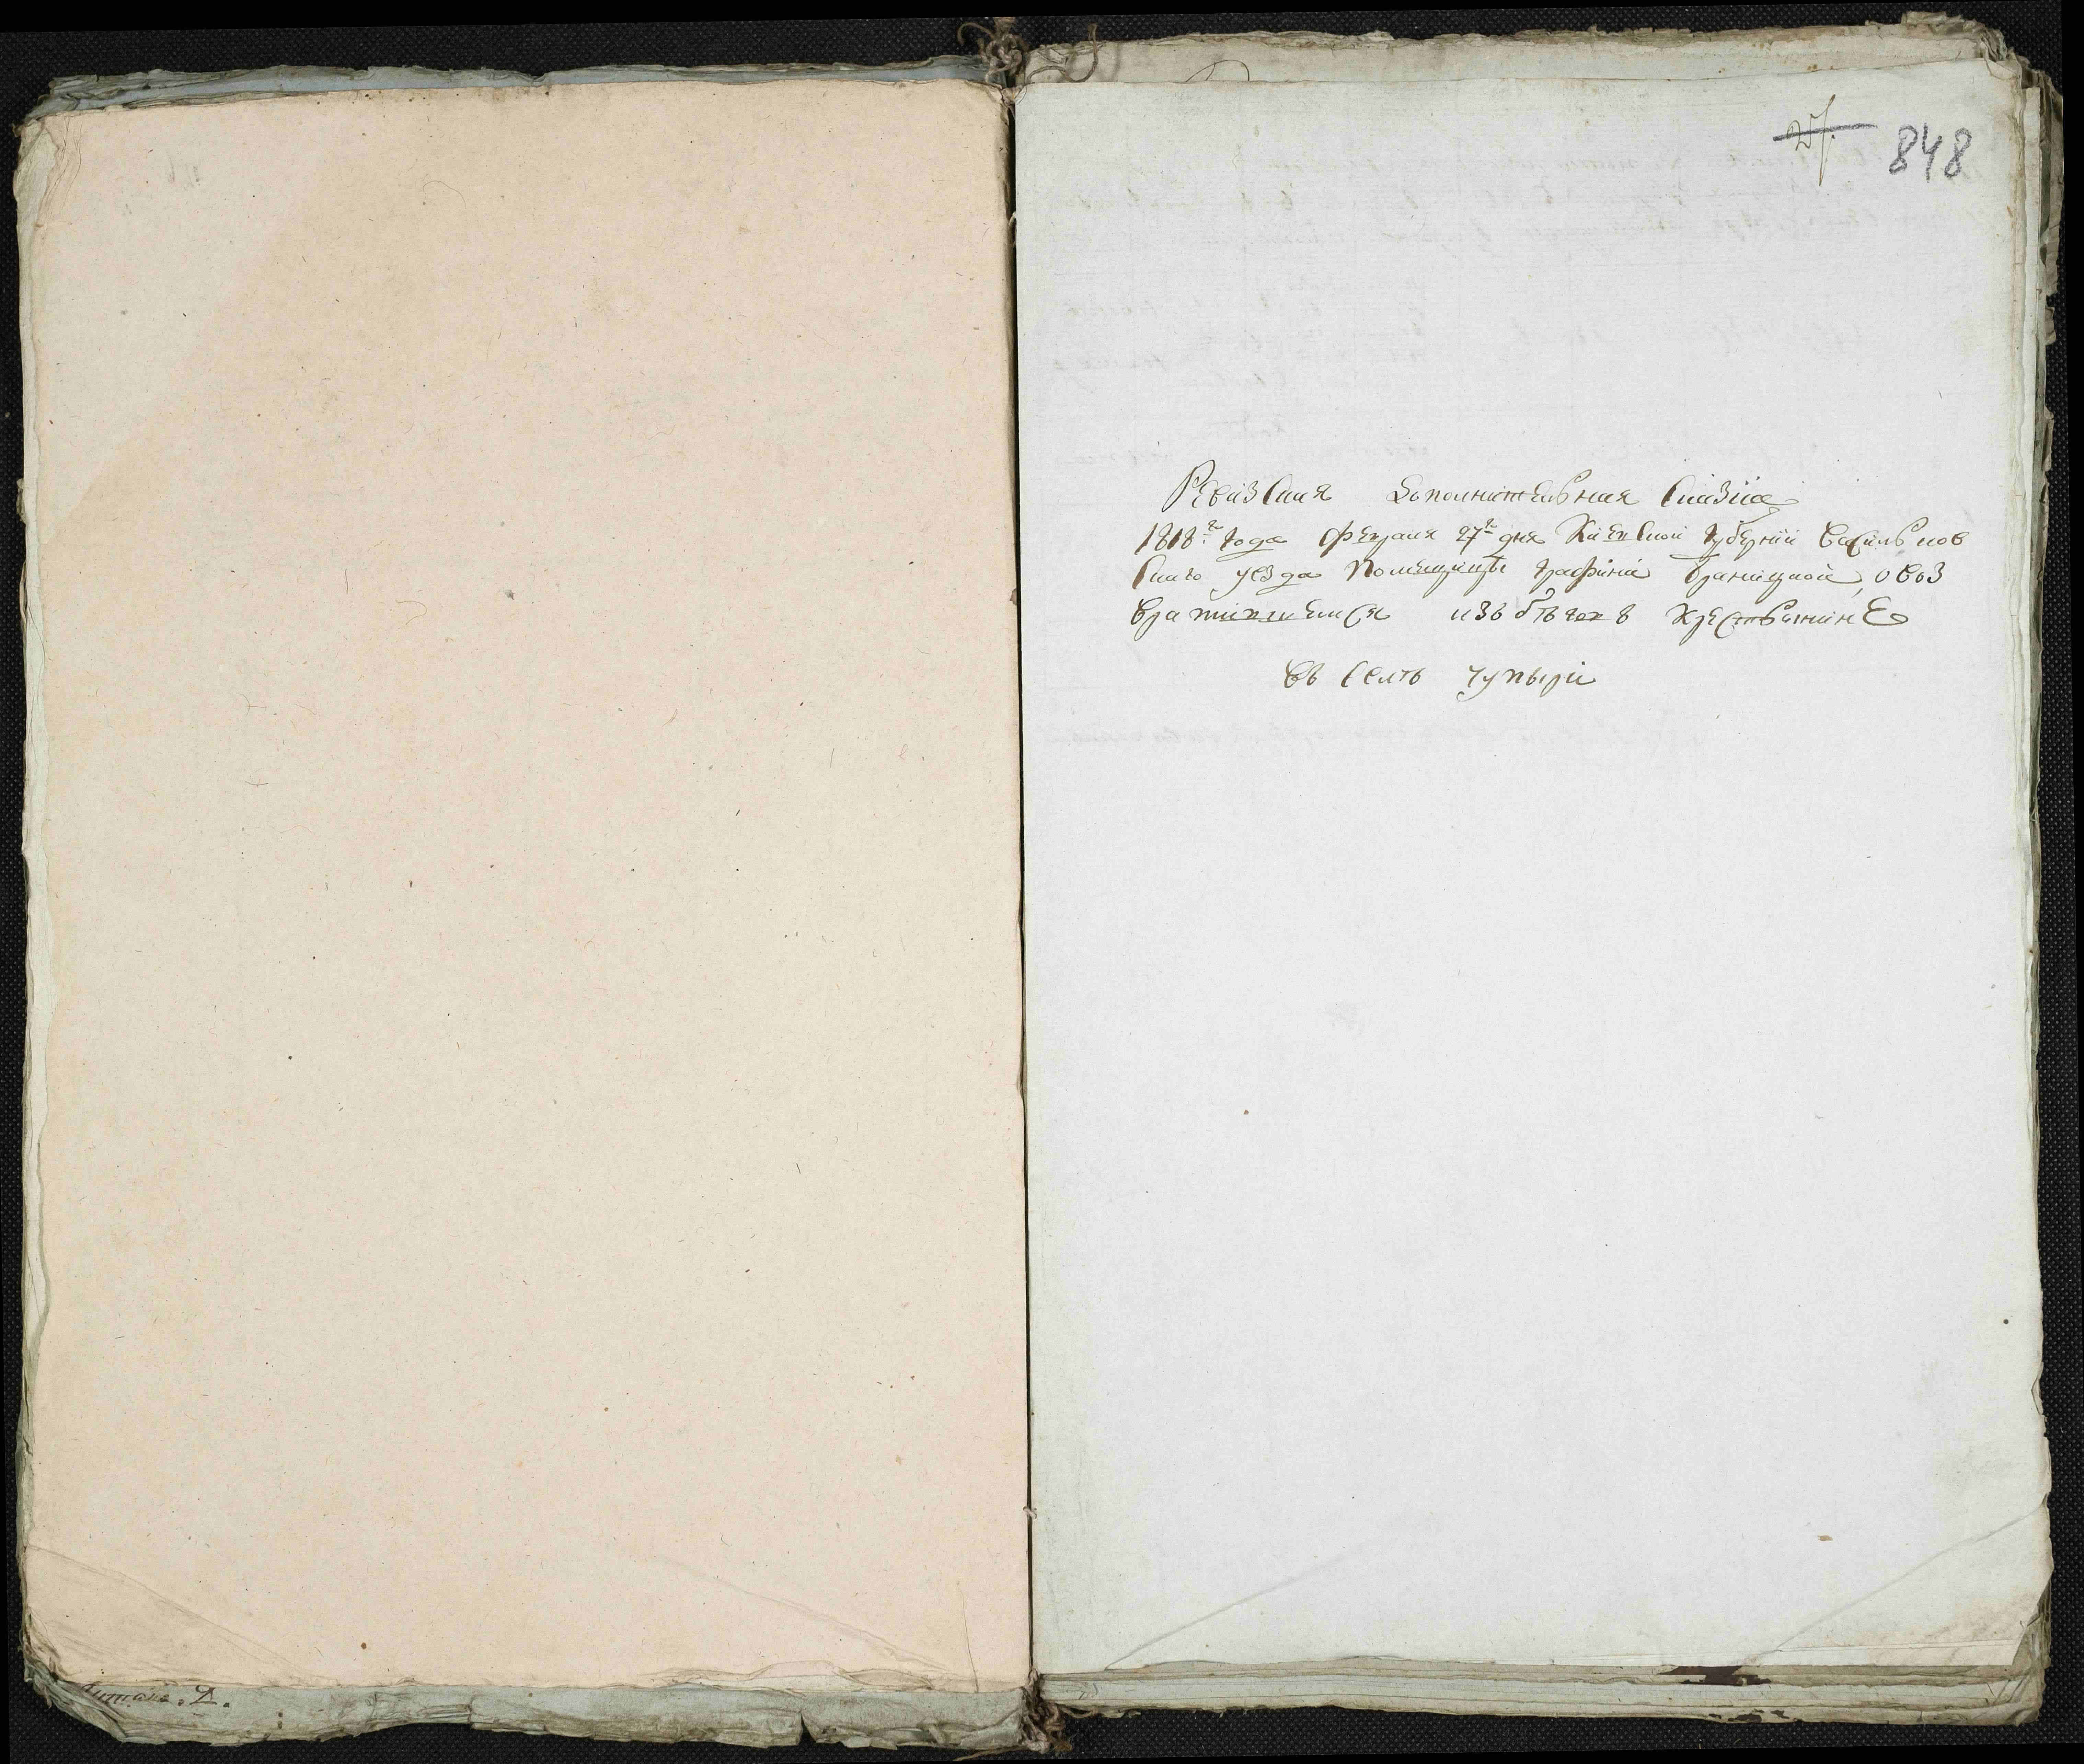 27.
848
Ревизская дополнительная Сказка
1818го Года Февраля 27го дня Киевской Губернии Васильков
Скаго уезда Помещицы Графини Браницкой, овоз
вратившемся изъ бегов Крестьянине
въ Селѣ Чупыри